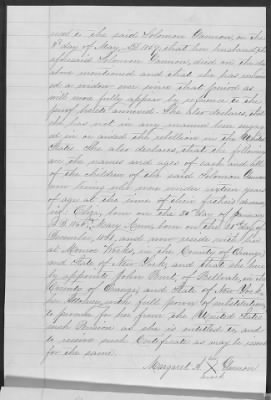 ried to the said Solomon Gannon, on the
8th day of May, A.D. 1859, that her husband the
aforesaid Solomon Gannon, died on the day
above mentioned and that she has remain
ed a widow ever since that period as
will more fully appear by reference to the
proof hereto annexed. She also declares, that
she has not in any manner been engag
ed in or aided the rebellion in the United
States. She also declares, that the following
are the names and ages of each and all
of the children of the said Solomon Gannon
now living who were under sixteen years
of age at the time of their father's decease
viz: born on the 30 day of January
A.D. 18 Mary Ann, born on the 25 day of
December, 1861, and now reside with her
at Monroe Works, in the County of Orange,
and State of New York, and that she here
by appoints John Bent, of Bellvale, in the
County of Orange, and State of New York,
her Attorney with full power of substitution
to procure for her from the United States
such Pension as she is entitled to, and
to receive such Certificate as may be issued
for the same.
Margaret A X Gannon
mark